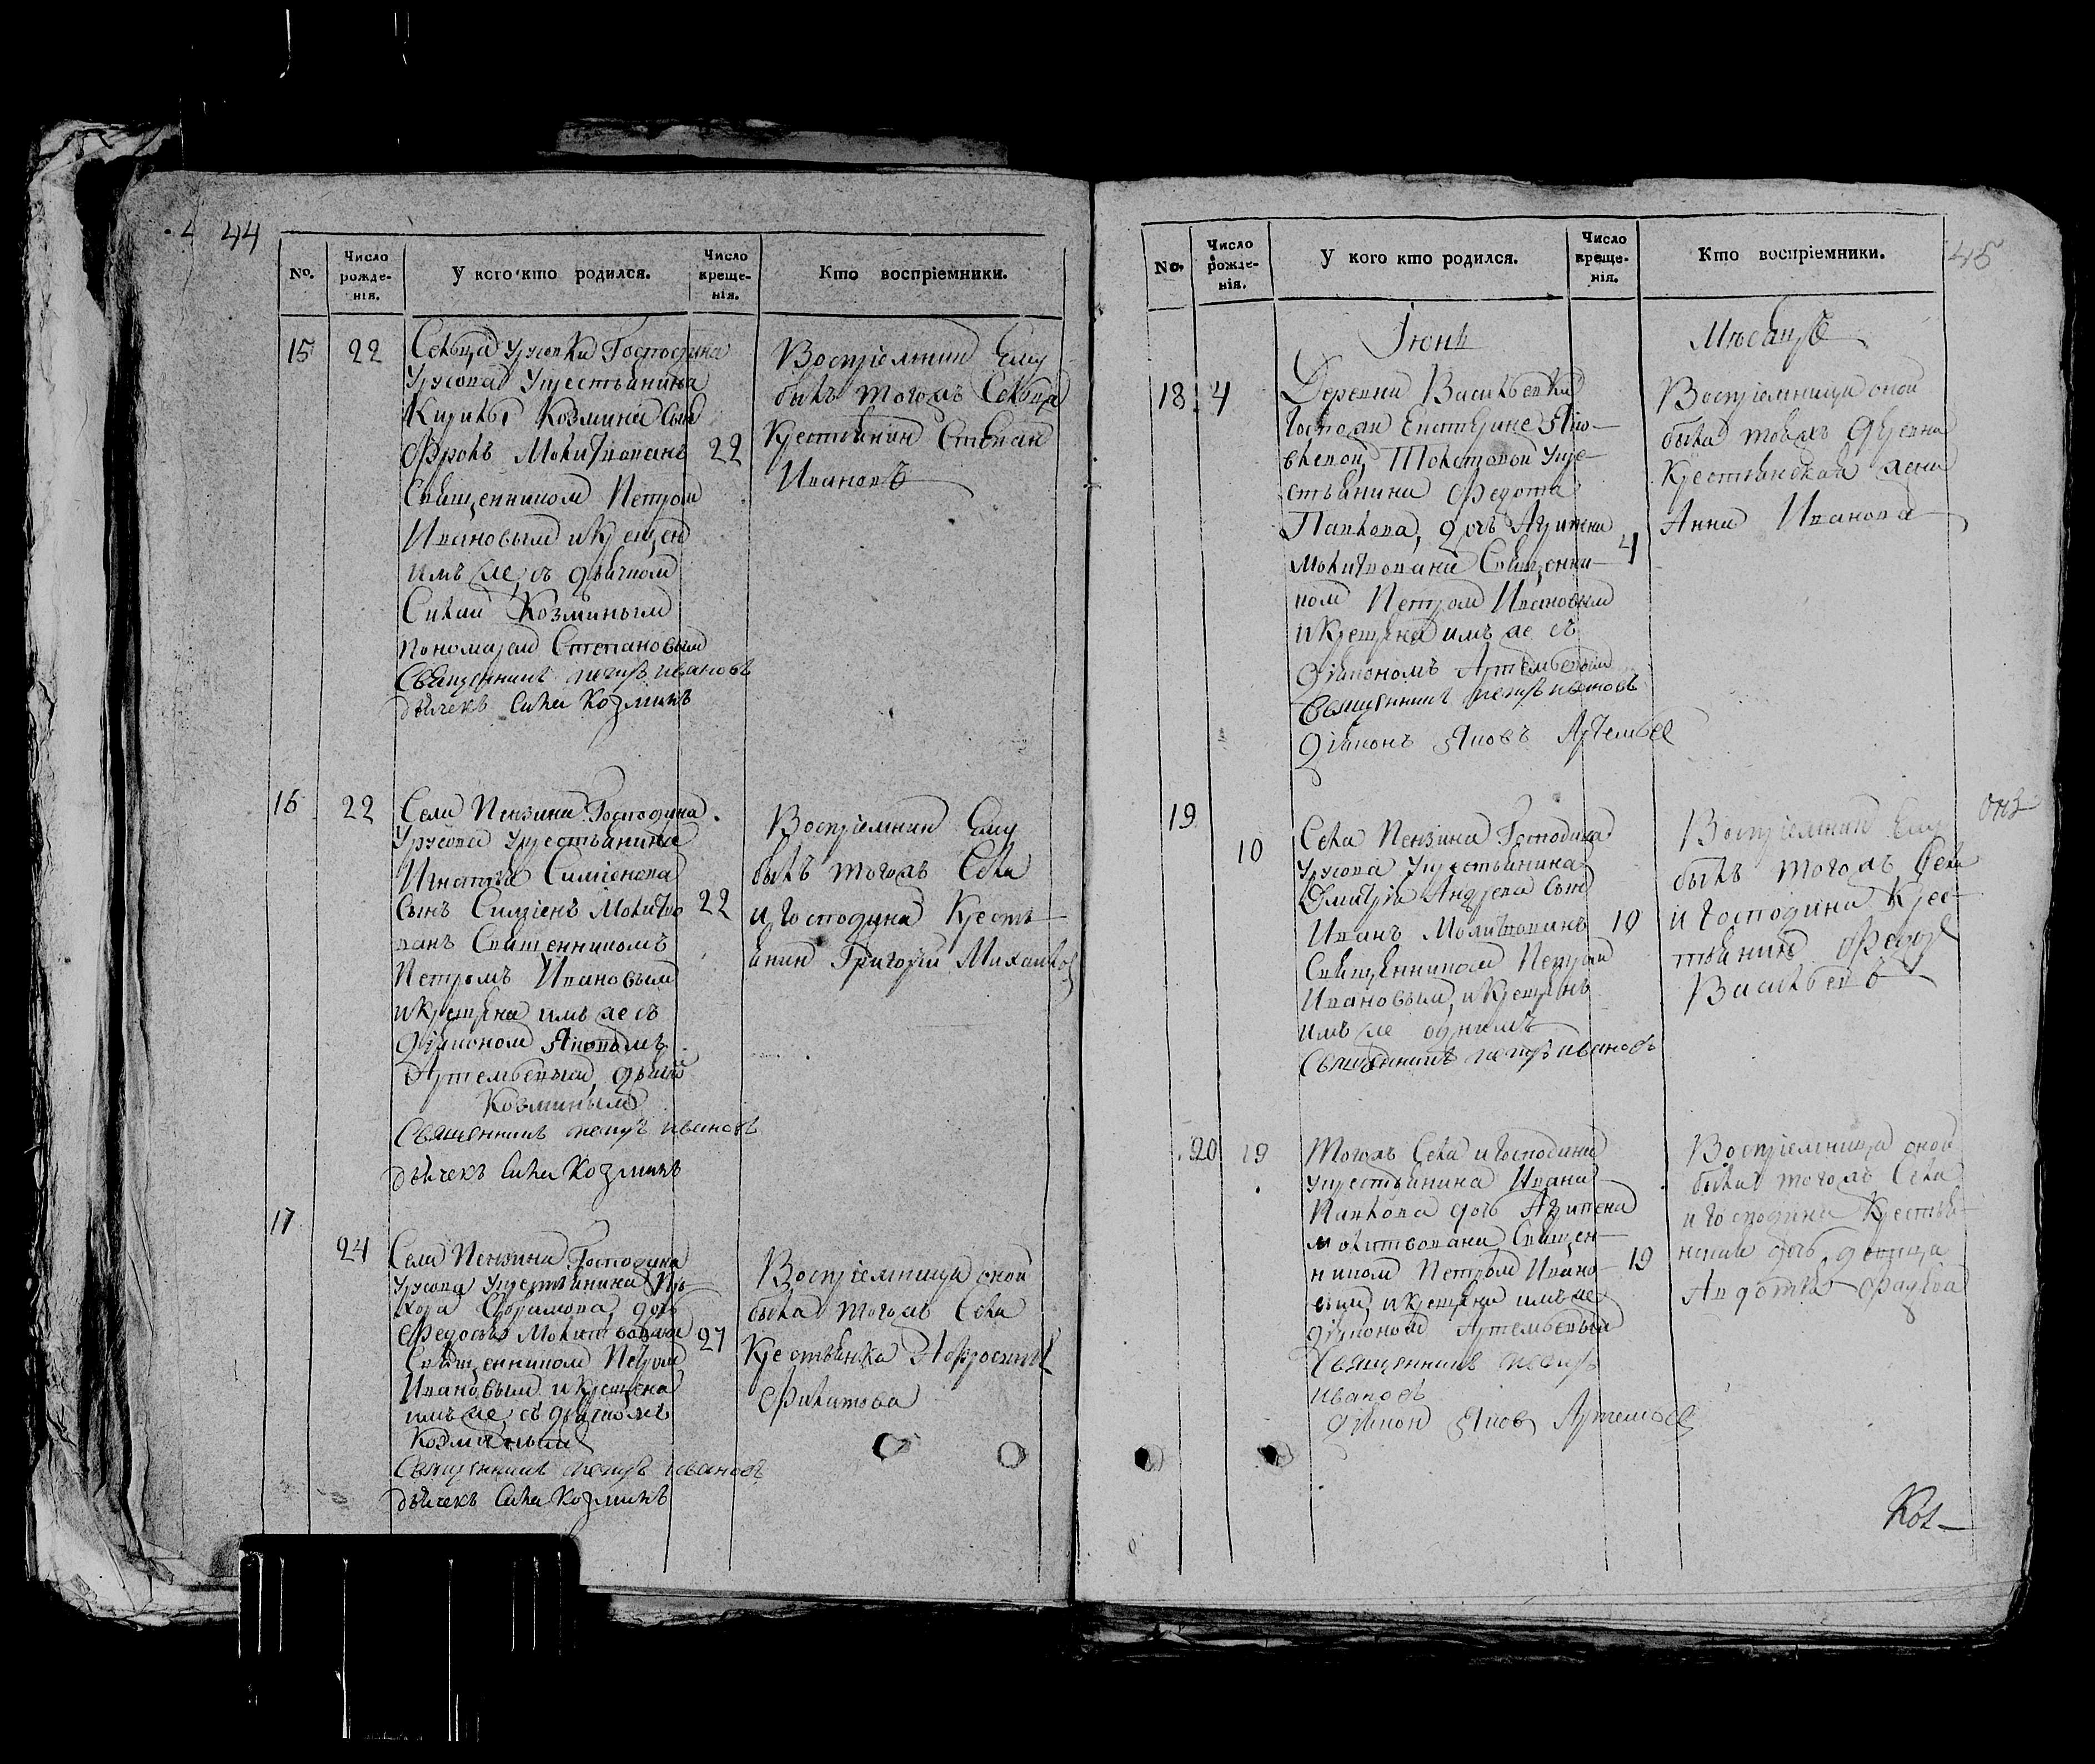 44
No.
Число рожде-нія.
У кого кто родился.
Число креще-нія.
Кто воспріемники.
15
22
Сельца Урусовки Господина
Урусова у крестьянина
Кирилы Козмина сынъ
Фролъ Молитвованъ
22
Священником Петром
Ивановым и Крещен
имъ же, съ дьячком
Силай Козминым
пономарем Степановым
Священникъ петръ ивановъ
дьячекъ Сила Козминъ
Воспріемник Ему
былъ тогожъ Сельца
Крестьянин Степан
Ивановъ
16
22
Села Пензина Господина
Урусова у крестьянина
Игнатья Симіонова
Сынъ Симіенъ Молитво
22
ванъ Священникомъ
Петромъ Ивановым
и Крещена имъ же съ
діяконом Яковомъ
Артемьевым, дьяч
Козминым
Священникъ петръ ивановъ
дьячекъ Сила Козминъ
Воспріемник Ему
былъ тогожъ Села
и Господина Кресть-
янин Григорій Михайлов
17
24
Села Пензина Господина
Урусова у крестьянина
дочь
Федосья Молитвована
27
Священником Петром
Ивановым и Крещена
имъ же, съ дьячкомъ
Козминым
Священникъ петръ ивановъ
дьячекъ Сила Козминъ
Воспріемница оной
была тогожъ Села
Крестьянка
Филипова
45
No.
Число рожде-нія.
У кого кто родился.
Число креще-нія.
Кто воспріемники.
Іюнь
Мѣсяцъ
18
4
Деревни Васильевки
Госпожи Екатерине Яко-
влевой Толстовой у кре-
стьянина Федота
Павлова, дочь Агрипена
4
Молитвована Священни-
ком Петром Ивановым
и Крещена имъ же съ
діякономъ Артемьевым
Священникъ петръ ивановъ
Діяконъ Яковъ Артемьев
Воспріемница оной
была тоежъ деревни
Крестьянская жена
Анна Иванова
19
10
Села Пензина Господина
Урусова у крестьянина
Дмитрія Андрева сынъ
Иванъ Молитвованъ
10
Священником Петром
Ивановым, и Крещенъ
имъ же однимъ
Священникъ петръ ивановъ
Воспріемник Ему
былъ тогожъ Села
и Господина Крес-
тьянинъ Федор
Васильевъ
20
19
Тогожъ Села и Господина
у крестьянина Ивана
Павлова дочь Агрипена
молитвована Священ-
ником Петром Ивано-
19
вым, и крещена имъ же
діяконом Артемьевым
Священникъ петръ
ивановъ
діякон Яков Артемьев
Воспріемница оной
была тогожъ Села
и Господина Крестья-
нина дочь девица
Авдотья
Кол-